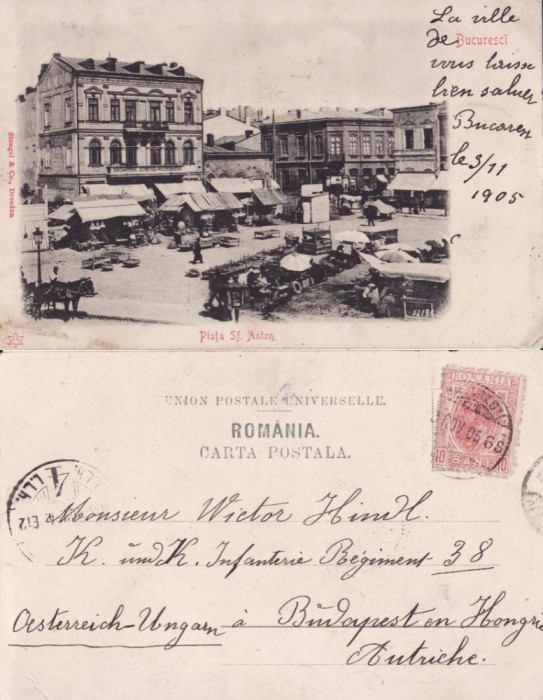 La ville
de
Bucuresci
vous laisse
bien saluer
Bucarest
le 3/11
1905
Stengel & Co., Dresden
5218
Piața Sf. Anton
UNION POSTALE UNIVERSELLE.
ROMÂNIA.
CARTA POSTALA.
ROMANIA
NOV 05
10 BANI 10
4
Monsieur Wictor Hindl.
K. und K. Infanterie Régiment 38
Oesterreich-Ungarn à Búdapest en Hongrie
Autriche.